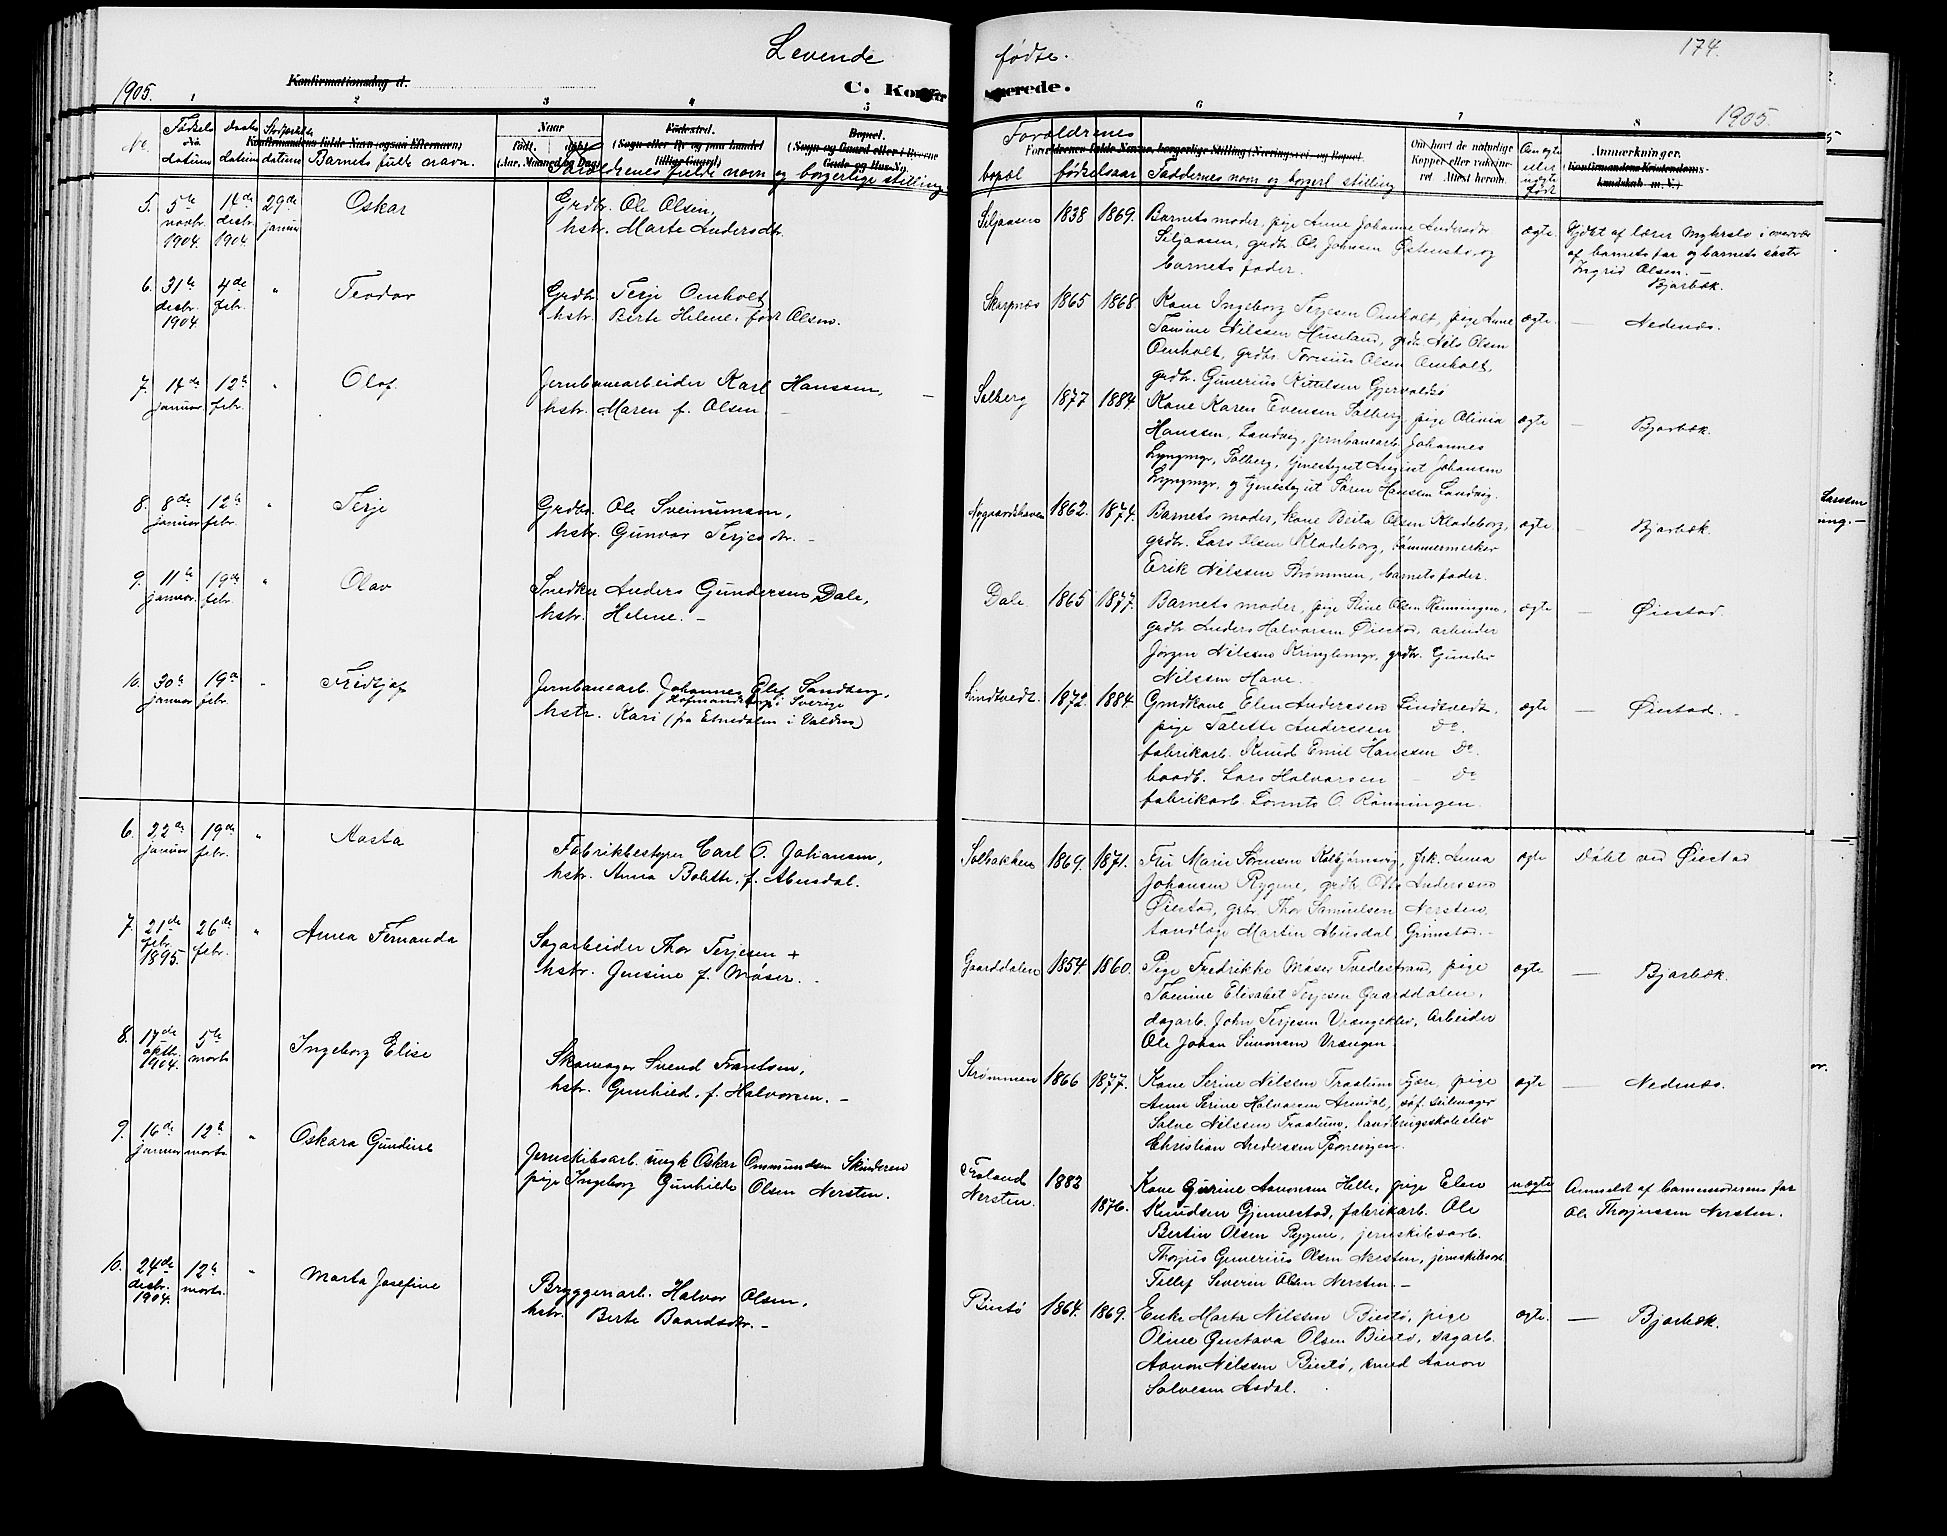 Levende
fødte.
174.
1905.
Konfirmationsdag d.
C. Konfir
merede.
1905.
1
2
3
4
5
6
7
8
No.
Fødsels datum
Daabs datum
Konfirmandens fulde Navn (ogsaa Efternavn)
Barnets fulde navn.
Naar
født. (Aar, Maaned og Dag)
Fødested.
(Sogn eller By og paa Landet tillige Gaard)
Bopæl.
(Sogn og Gaard eller i Byerne Gade og Hus-No.)
Forældrenes fulde navn og borgerlige stilling
Forældrenes
bopæl
fødselsaar
Faddernes navn og borgerl. stilling
Om havt de naturlige Kopper eller vaccineret. Attest herom.
Om ægte eller uægte født
Anmærkninger.
(Konfirmandens Kristendomskundskab m. V.)
5.
5te novbr. 1904.
11te desbr. 1904.
29de januar
Oskar
Grdbr. Ole Olsen,
hstr. Marte Andersdtr.
Siljaasen
1838
1869.
Barnets moder, pige Anne Johanne Andersdtr
Siljaasen, grdbr. Ol. Johnsen Østensbø, og
barnets fader.
ægte.
Hjdøbt af lærer Myhrslo i overvær
af barnets far og barnets søster
Ingrid Olsen. —
Bjorbæk.
6.
31te desbr. 1904
4de febr.
"
Teodor
Grdbr. Terje Omholt
hstr. Berte Helene, født Olsen.
Skarpnæs
1865
1868
Kone Ingeborg Terjesen Omholt, pige Anne
Tomine Nilssen Huseland, grdbr. Nils Olsen
Omholt, grdbr. Toresius Olsen Omholt,
grdbr. Gunerius Kittelsen
ægte.
— Nedenæs.
7.
januar
12te febr.
"
Olaf
Jernbanearbeider Karl Hanssen,
hstr. Maren f. Olsen —
Solberg
1877
1884.
Kone Karen Evensen Solberg, pige Olivia
Hanssen, Landvig, jernbanearb. Johannes
Lyngmyr, Solberg, tjenestegut August Johansen
Lyngmyr, og tjenestegut Søren Hanssen Landvig.
ægte
— Bjorbæk.
8.
8de januar
12te febr.
"
Terje
Grdbr. Ole Sveinunsen,
hstr. Gunvor Terjesdtr. —
Nygaardshaven
1862.
1874.
Barnets moder, kone Berta Olsen Kladeborg,
grdbr. Lars Olsen Kladeborg, tømmermerker
Erik Nilssen Strømmen, barnets fader.
ægte
— Bjorbæk.
9.
11te januar.
19de febr.
"
Olav
Snedker Anders Gundersen Dale,
hstr. Helene. —
Dale
1865
1877.
Barnets moder, pige Stine Olsen Rønningen,
grdbr. Anders Halvorsen Øiestad, arbeider
Jørgen Nilssen Kringlemyr, grdbr. Gunder
Nilssen Have.
ægte
— Øiestad.
10.
30te januar
19de febr.
Fridtjof
Jernbanearb. Johannes Olof Sandberg,
i Sverige
hstr. Kari (fra Etnedalen i Valdres)
Lindtvedt.
1872.
1884.
Grndkone Elen Anderssen Lindtvedt,
pige Talette Anderssen Do.
fabrikarb. Knud Emil Hanssen Do.
baadb. Lars Halvorsen — Do
fabrikarb. Lorents O. Rønningen.
ægte
— Øiestad. —
6.
22de januar
19de febr.
"
Aasta
Fabrikbestyrer Carl O. Johansen,
hstr. Anna Bolette, f. Abusdal.
Solbakken
1869.
1871.
Fru Marie Sørensen Kolbjørnsvig, frk. Anna
Johansen Rygene, grdb. Otto Anderssen
Øiestad, grbr. Thor Samuelsen Nersten,
tandlæge Martin Abusdal, Grimstad. —
ægte
Døbt ved Øiestad
7.
21de febr. 1895.
26de febr.
"
Anna Fernanda
Sagarbeider Thor Terjesen +
hstr. Jensine f. Møser. —
Gaarddalen
1854
1860.
Pige Fredrikke Møser Tvedestrand, pige
Tomine Elisabet Terjesen Gaarddalen,
dagarb. John Terjesen Vrængekløv, Arbeider
Ole Johan Simonsen Vrængen.
ægte
— Bjorbæk.
8.
17de oktb. 1904.
5te marts
Ingeborg Elise
Skomager Svend Frantsen,
hstr. Gunhild, f. Halvorsen. —
Strømmen
1866
1877.
Kone Serine Nilssen Traalum Fjære, pige
Anna Serine Halvorsen Arendal, søf. seilmager
Salve Nilssen Traalum, landbrugsskoleelev
Christian Anderssen
ægte
— Nedenæs.
9.
16de januar
12te marts
"
Oskara Gundine
Jernskibsarb. ungk Oskar Ommundsen Skinderen
pige Ingeborg Gunhilde Olsen Nersten.
Froland
Nersten.
1883
1876.
Kone Gurine Aanonsen Helle, pige Elen
Knudsen Gjennestad, fabrikarb. Ole
Bertin Olsen Rygene, jernskibsarb.
Thorjus Gunerius Olsen Nersten, jernskibsarb.
Tellef Severin Olsen Nersten. —
uægte
Anmeldt af barnemoderens far
Ole Thorjussen Nersten.
10.
24de desbr. 1904.
12te marts.
"
Marta Josefine
Bryggeriarb. Halvor Olsen,
hstr. Berte Baardsdtr. —
Biestø
1864.
1869.
Enke Marta Nilssen Biestø, pige
Oline Gustava Olsen Biestø, sagarb.
Aanon Nilssen Biestø, smed Aanon
Salvesen Asdal.
ægte.
— Bjorbæk.
Larssen
ning. —